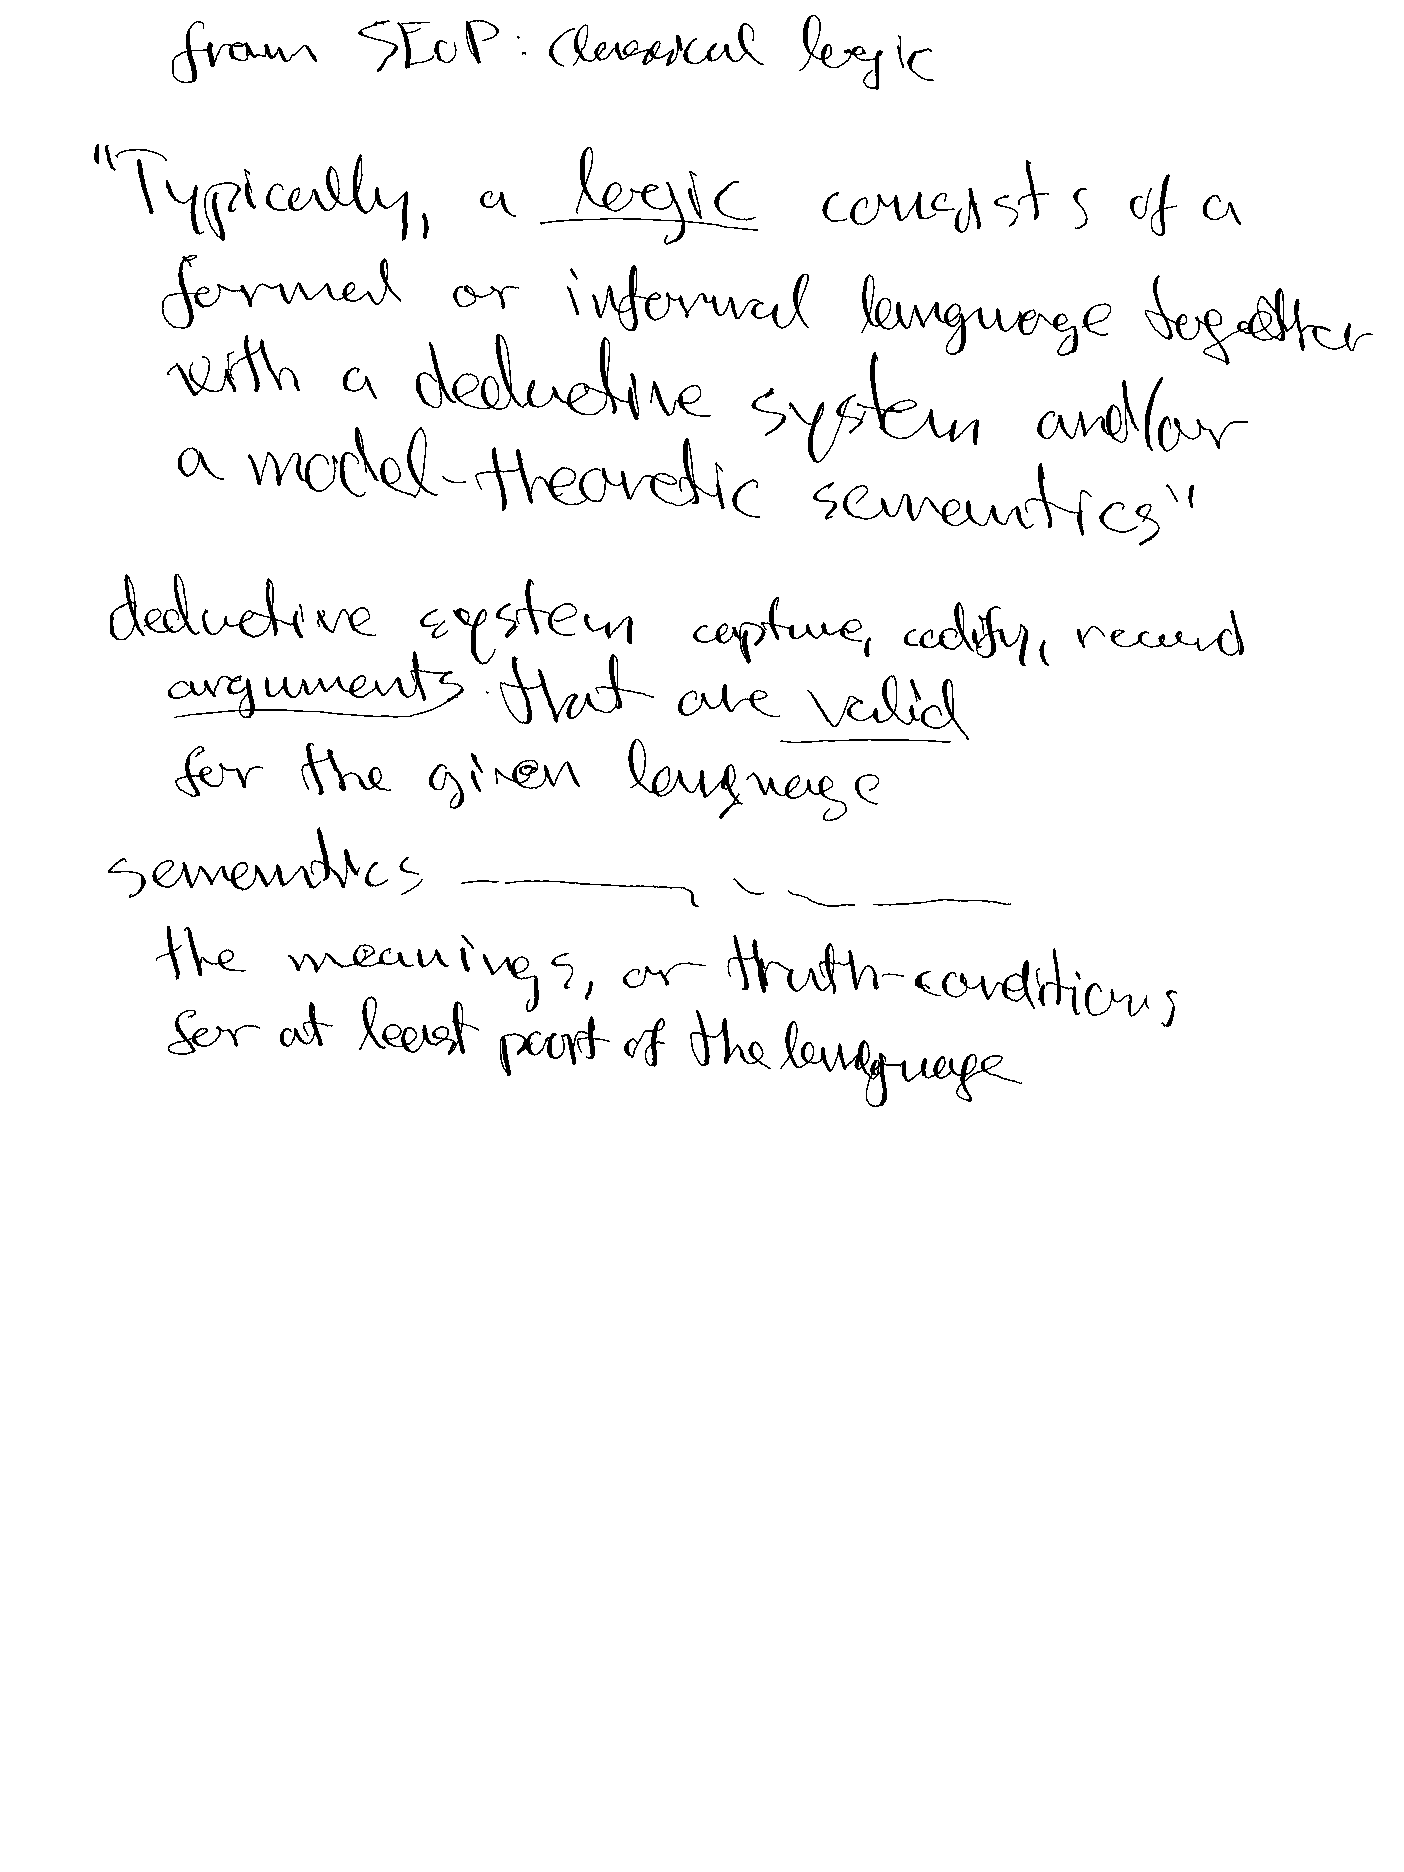 from SEoP: Classical logic
"Typically, a logic consists of a
formal or informal language together
with a deductive system and/or
a model-theoretic semantics"
deductive system capture, codify, record
arguments that are valid
for the given language
semantics
the meanings, or truth-conditions
for at least part of the language